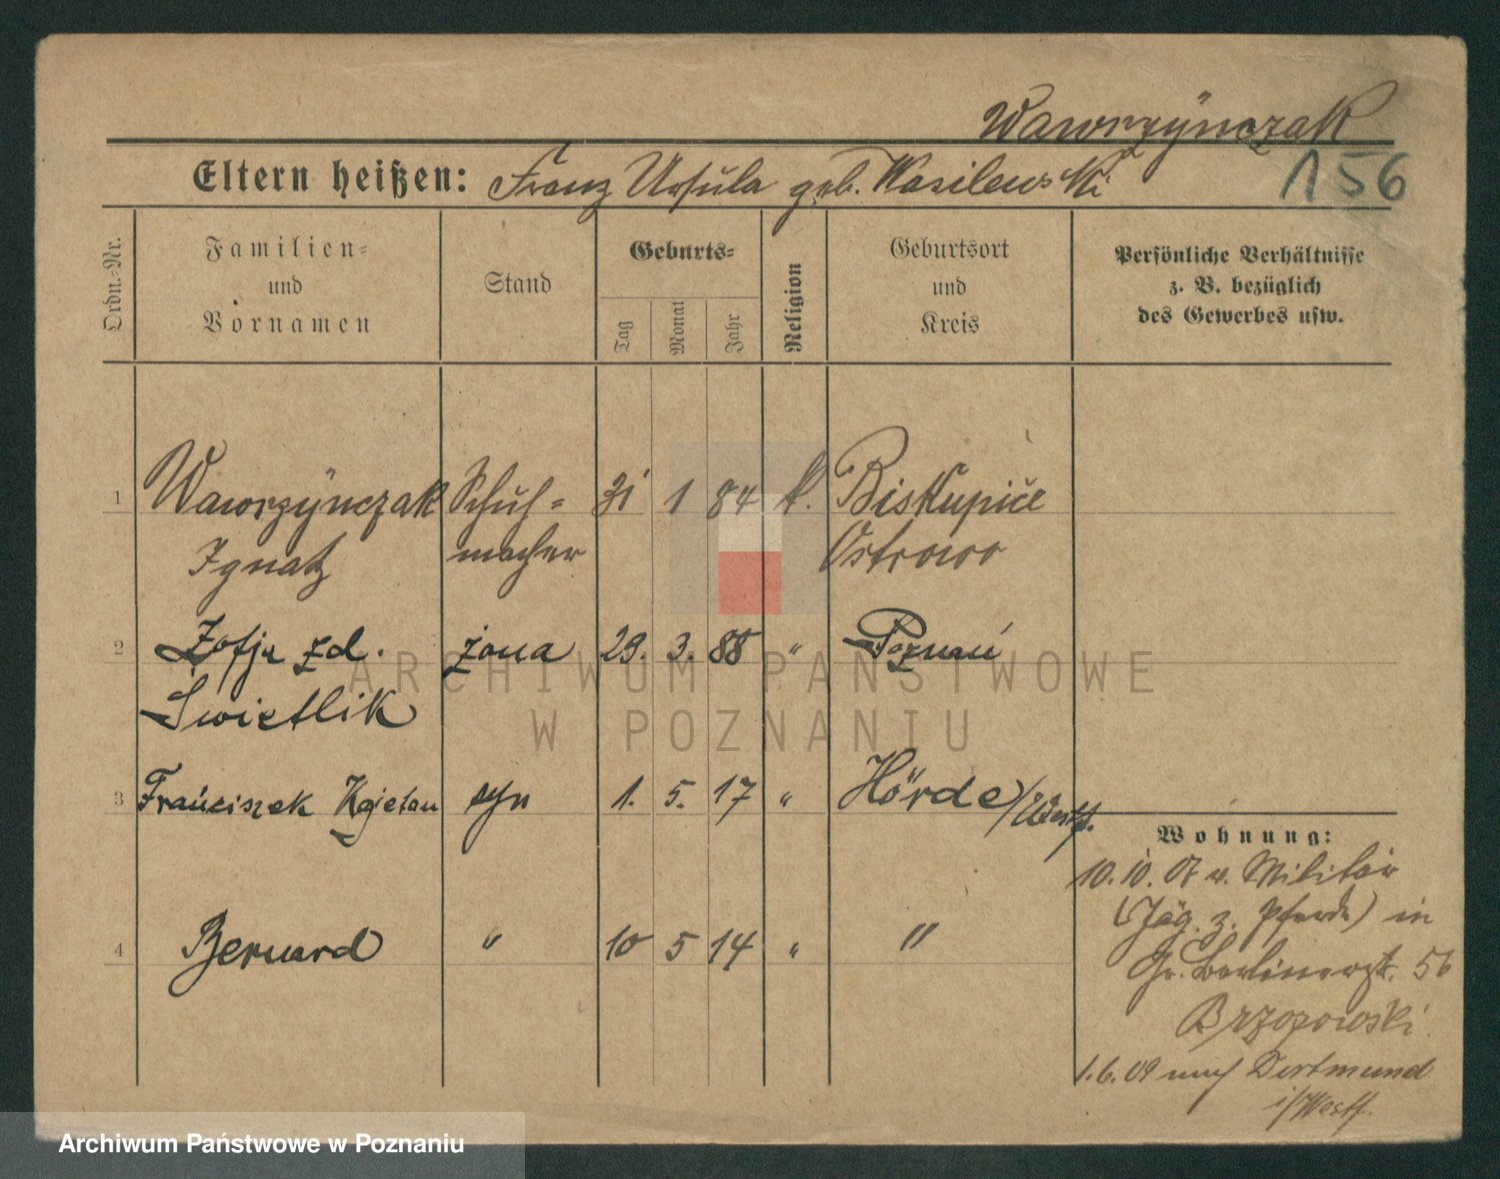 Wawrzÿnczak
156
Eltern heißen: Franz Ursula geb. Wasilewski
Ordn.-Nr.
Familien-
und
Vornamen
Stand
Geburts-
Tag
Monat
Jahr
Religion
Geburtsort
und
Kreis
Persönliche Verhältnisse
z. B. bezüglich
des Gewerbes usw.
1 Wawrzÿnczak Schuh- 31 1 84 k. Biskupice
Ignatz macher Ostrowo
2 Zofja zd. żona 29. 3. 88 " Poznań
Swietlik
3 Franciszek Kajetan syn 1. 5. 17 " Hörde/Westf.
4 Bernard " 10 5 14 " "
Wohnung:
10. 10. 07 v. Militär
(Jäg. z. Pferde) in
Gr. Berlinerstr. 56
Brzozowski
1.6.09 nach Dortmund
i/Westf.
ARCHIWUM PAŃSTWOWE
W POZNANIU
Archiwum Państwowe w Poznaniu